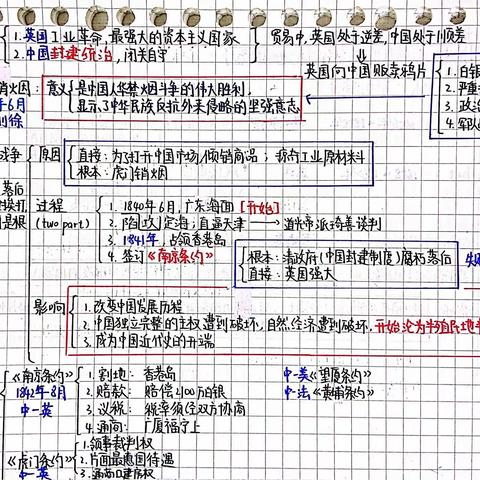 1.英国工业革命,最强大的资本主义国家
2.中国封建统治,闭关自守
贸易中,英国处于逆差,中国处于顺差
英国向中国贩卖鸦片
1.白银
2.严重
3.政治
4.军队
消火因:
年6月
则徐
意义
是中国人华禁烟斗争的伟大胜利.
显示了中华民族反抗外来侵略的坚强意志.
战争
原因
直接:为了打开中国市场,倾销商品;掠夺工业原材料
根本:虎门销烟
落后
挨打,
是根
过程
(two part)
1. 1840年6月,广东海面[开始]
2. 陷[攻]定海;直逼天津→道光帝派琦善谈判
3. 1841年,占领香港岛
4. 签订《南京条约》
根本:清政府(中国封建制度)腐朽落后
直接:英国强大
失
影响
1.改变中国发展历程
2.中国独立完整的主权遭到破坏,自然经济遭到破坏,开始沦为半殖民地半
3.成为中国近代史的开端
《南京条约》
1842年8月
中—英
1.割地:香港岛
2.赔款:赔偿2100万白银
3.议税:税率须经双方协商
4.通商:广厦福宁上
中—美《望厦条约》
中—法《黄埔条约》
《虎门条约》
中—英
1.领事裁判权
2.片面最惠国待遇
3.通商口建房权